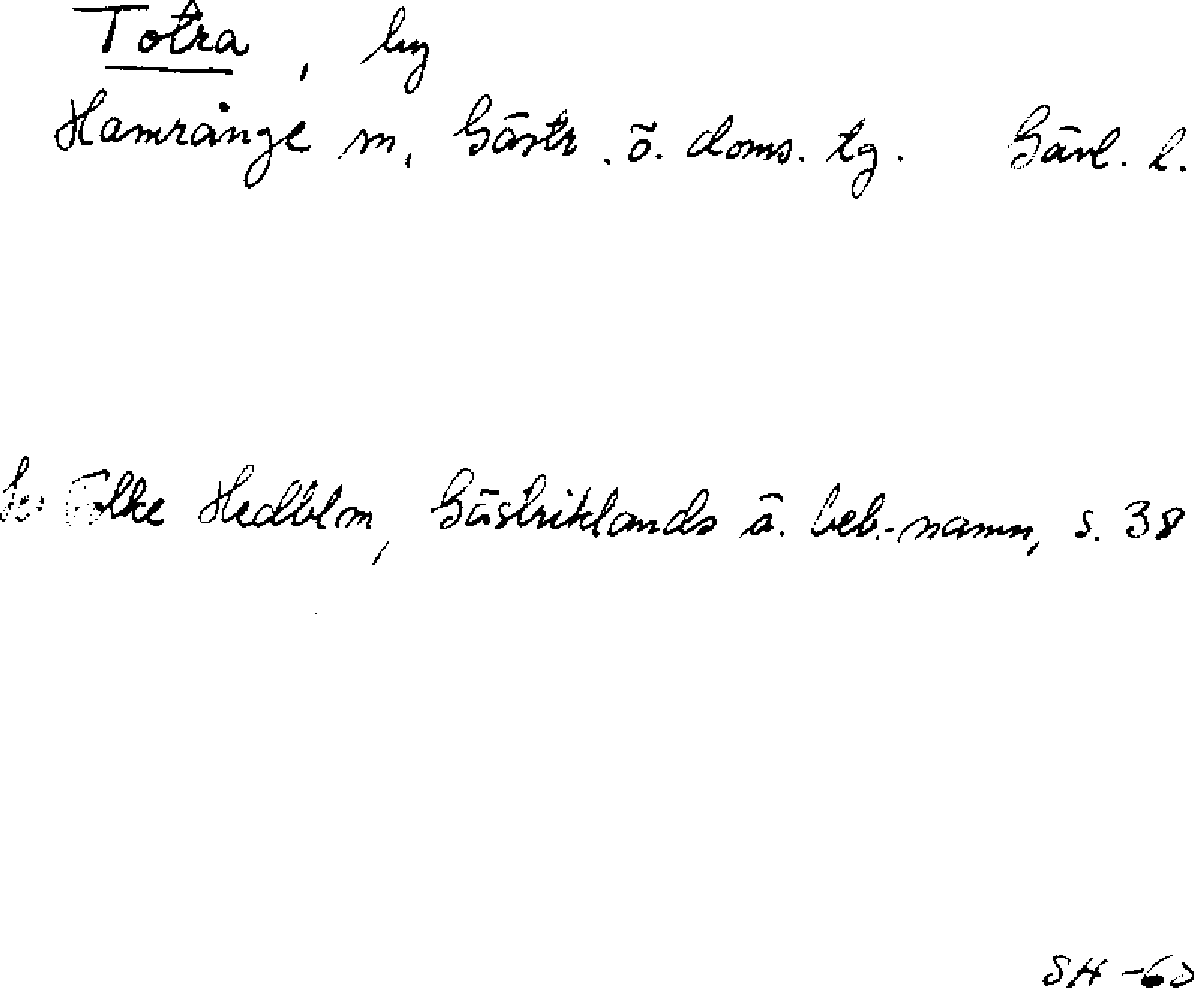 Totra, by
Hamrånge sn, Gästr. ö. doms. tg. Gävl. l.
Se Folke Hedblom, Gästriklands ä. beb.-namn, s. 38
SH